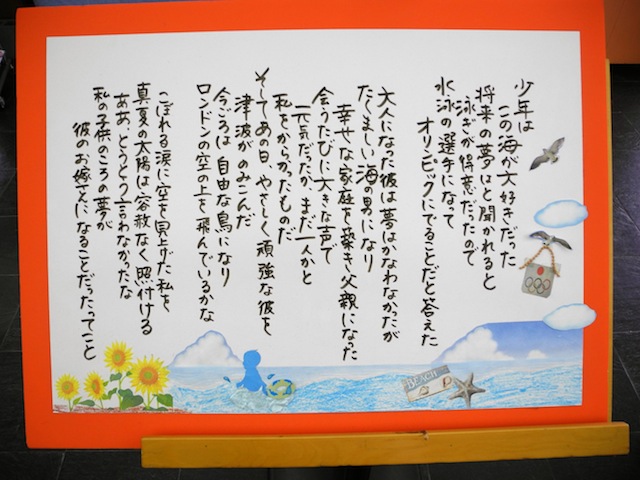 少年は
この海が大好きだった
将来の夢はと聞かれると
泳ぎが得意だったので
水泳の選手になって
オリンピックにでることだと答えた
大人になった彼は夢はかなわなかったが
たくましい海の男になり
幸せな家庭を築き父親になった
会うたびに大きな声で
元気だったか、まだ一人かと
私をからかったものだ
そしてあの日、やさしく頑強な彼を
津波がのみこんだ
今ごろは自由な鳥になり
ロンドンの空の上を飛んでいるかな
こぼれる涙に空を見上げた私を
真夏の太陽は容赦なく照付ける
ああ、とうとう言わなかったな
私の子供のころの夢が
彼のお嫁さんになることだったってこと
BEACH